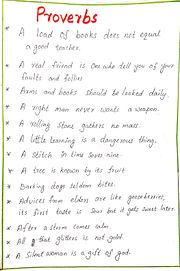 Proverbs
* A load of books does not equal
a good teacher.
* A real friend is one who tell you of your
faults and follies
* Arms and books should be looked daily.
* A right man never wants a weapon.
* A rolling stone gathers no mass.
* A little learning is a dangerous thing.
* A stitch in time saves nine.
* A tree is known by its fruit
* Barking dogs seldom bites.
* Advices from elders are like gooseberries,
its first taste is sour but it gets sweet later.
* After a storm comes calm.
* All that glitters is not gold.
* A Silent woman is a gift of god.